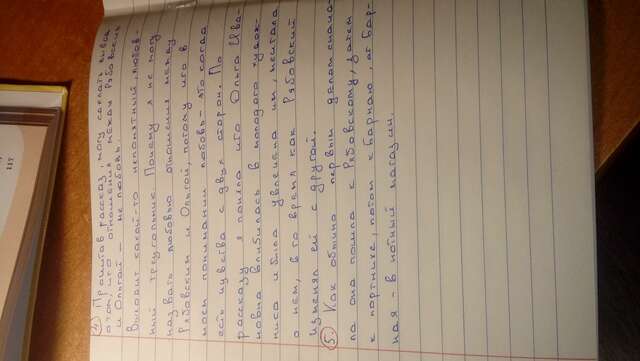 3) Прочитав рассказ, могу сделать вывод
о том, что отношения между Рябовским
и Ольгой - не любовь.
Выходит какой-то непонятный любов-
ный треугольник. Почему я не могу
назвать любовью отношения между
Рябовским и Ольгой, потому что в
моем понимании любовь - это когда
есть чувства с двух сторон. По
рассказу я поняла что Ольга Ива-
новна влюбилась в молодого худож-
ника и была увлечена им, мечтала
о нем, в то время как Рябовский
изменял ей с другой.
5. Как обычно первым делом снача-
ла она пошла к Рябовскому, затем
к портнихе, потом к Барнаю, от Бар-
ная - в нотный магазин.
117